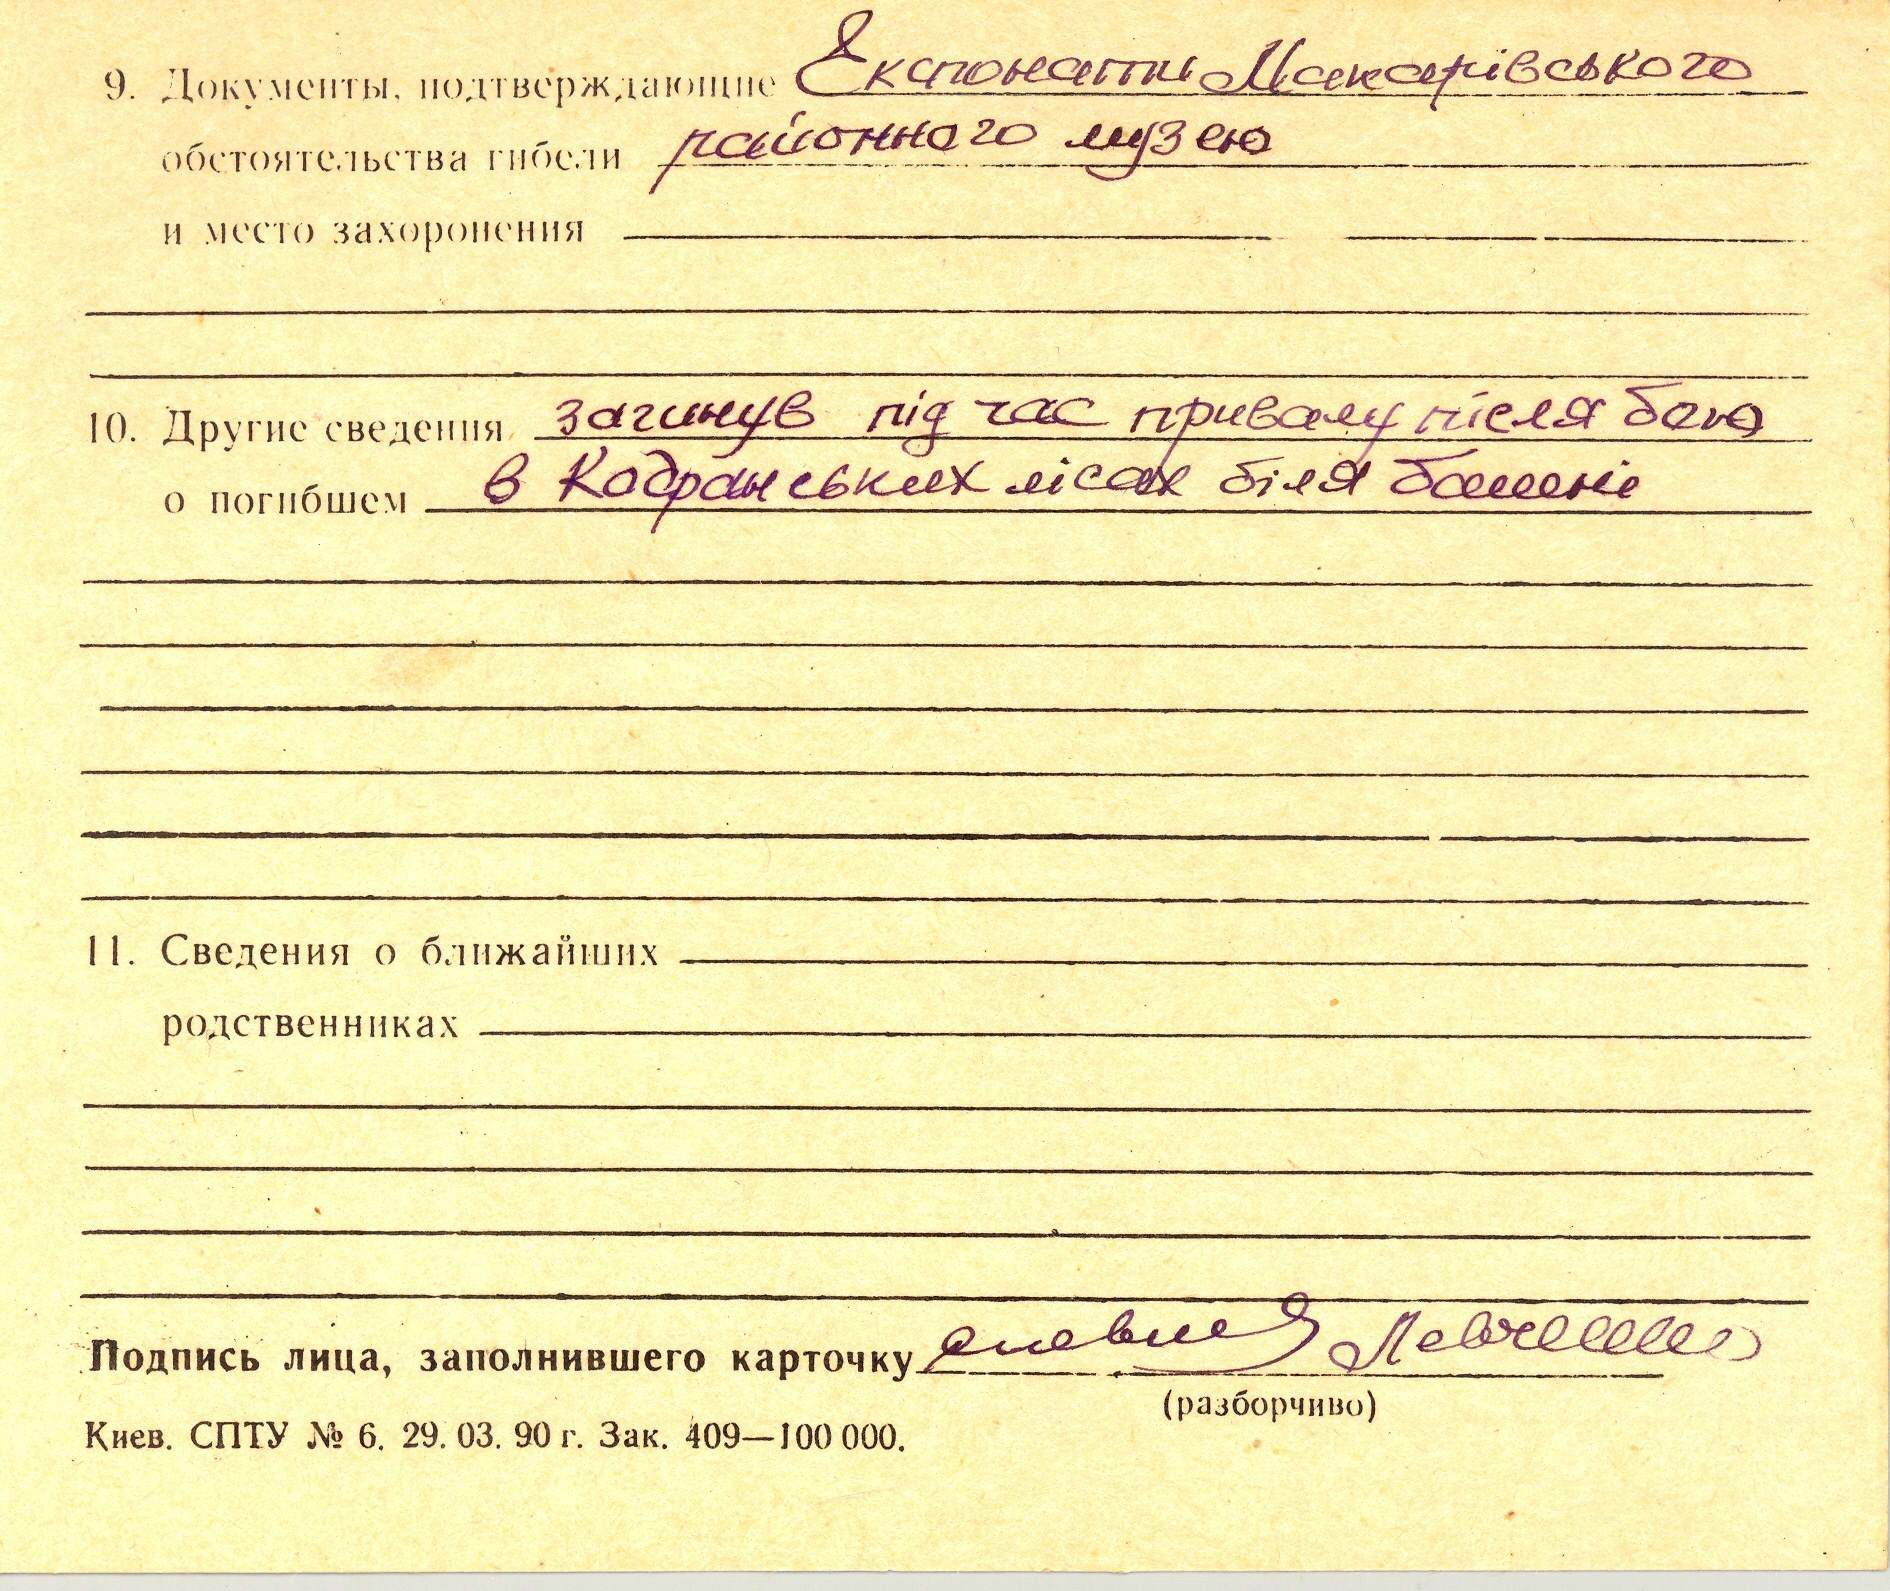 9. Документы, подтверждающие Експонати Макарівського
обстоятельства гибели районного музею
и место захоронения
10. Другие сведения загинув під час привалу після бою
о погибшем в Кодранських лісах біля башні
11. Сведения о ближайших
родственниках
Подпись лица, заполнившего карточку
(разборчиво)
Киев. СПТУ № 6. 29. 03. 90 г. Зак. 409—100 000.